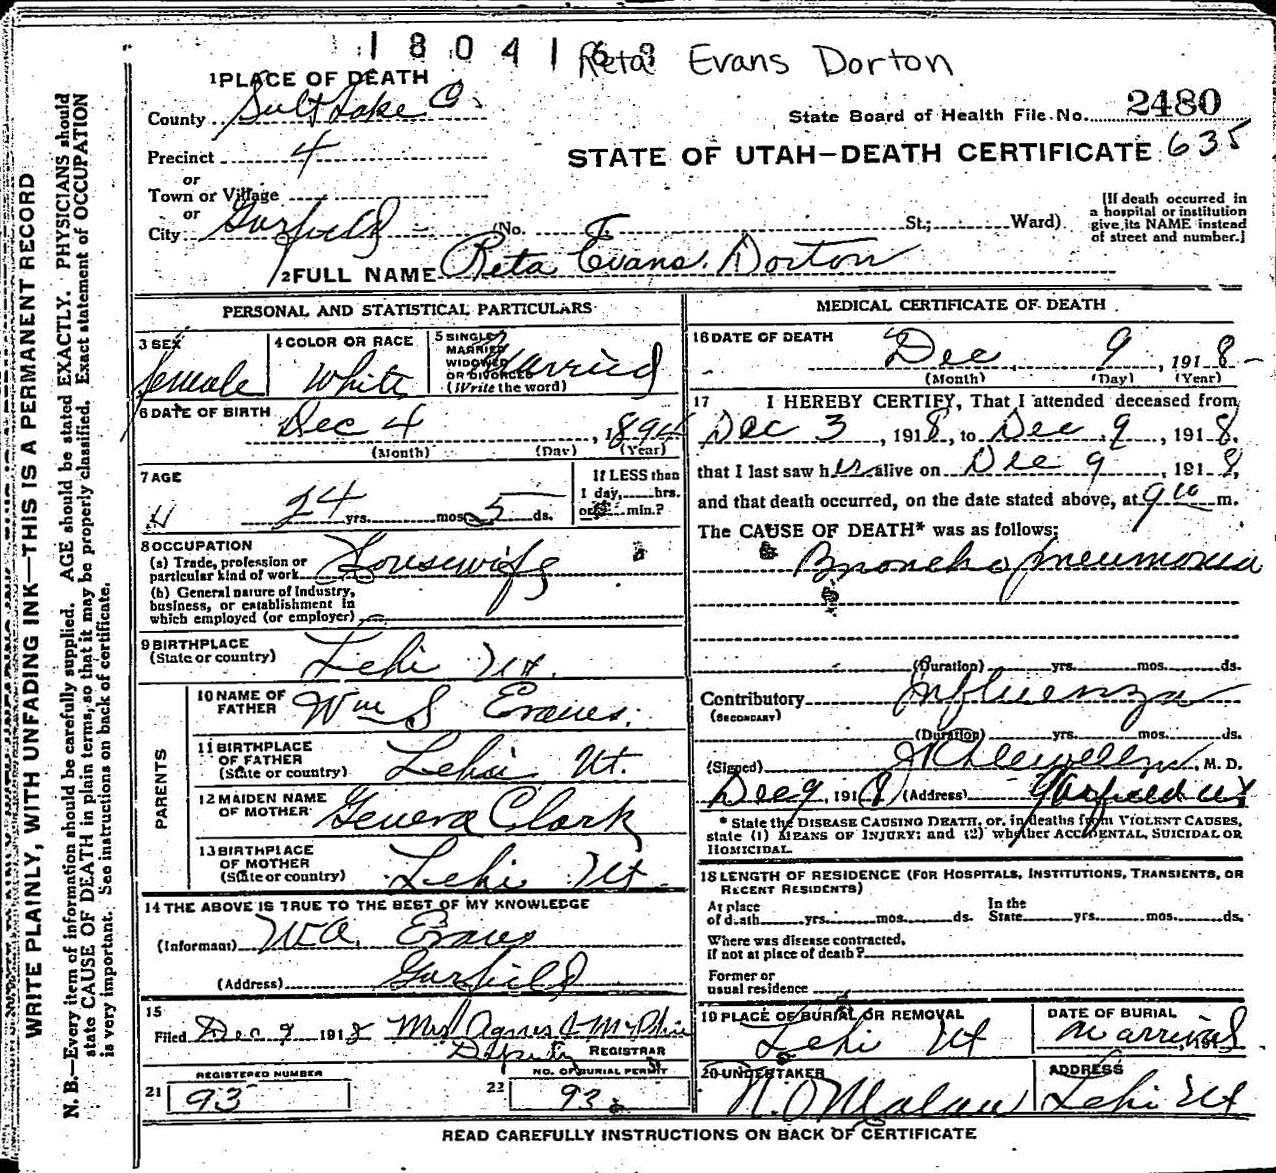 1 8 0 4 1 6 3 Reta Evans Dorton
1 PLACE OF DEATH
County Salt Lake Co.
State Board of Health File No. 2480
Precinct 4
STATE OF UTAH—DEATH CERTIFICATE 635
or
Town or Village
or
City Garfield (No. St.; Ward)
[If death occurred in a hospital or institution give its NAME instead of street and number.]
2 FULL NAME Reta Evans Dorton
PERSONAL AND STATISTICAL PARTICULARS
3 SEX female
4 COLOR OR RACE White
5 SINGLE MARRIED WIDOWED OR DIVORCED (Write the word) Married
6 DATE OF BIRTH Dec 4, 1894
(Month) (Day) (Year)
7 AGE 24 yrs. mos. 5 ds.
If LESS than 1 day, hrs. or min.?
8 OCCUPATION
(a) Trade, profession or particular kind of work Housewife
(b) General nature of Industry, business, or establishment in which employed (or employer)
9 BIRTHPLACE (State or country) Lehi Ut.
PARENTS
10 NAME OF FATHER Wm S Evans.
11 BIRTHPLACE OF FATHER (State or country) Lehi Ut.
12 MAIDEN NAME OF MOTHER Geneva Clark
13 BIRTHPLACE OF MOTHER (State or country) Lehi Ut
14 THE ABOVE IS TRUE TO THE BEST OF MY KNOWLEDGE
(Informant) Evans
(Address) Garfield
15 Filed Dec 9 1918 Mrs Agnes
Deputy REGISTRAR
21 REGISTERED NUMBER 93
22 NO. OF BURIAL PERMIT 93
MEDICAL CERTIFICATE OF DEATH
16 DATE OF DEATH Dec 9, 1918
(Month) (Day) (Year)
17 I HEREBY CERTIFY, That I attended deceased from
Dec 3, 1918, to Dec 9, 1918,
that I last saw her alive on Dec 9, 1918,
and that death occurred, on the date stated above, at 9 10 m.
The CAUSE OF DEATH* was as follows:
Broncho pneumonia
(Duration) yrs. mos. ds.
Contributory (SECONDARY) Influenza
(Duration) yrs. mos. ds.
(Signed) Llewellyn, M. D.
Dec 9, 1918 (Address) Garfield Ut
* State the DISEASE CAUSING DEATH, or, in deaths from VIOLENT CAUSES,
state (1) MEANS OF INJURY; and (2) whether ACCIDENTAL, SUICIDAL OR
HOMICIDAL.
18 LENGTH OF RESIDENCE (FOR HOSPITALS, INSTITUTIONS, TRANSIENTS, OR
RECENT RESIDENTS)
At place of death yrs. mos. ds. In the State yrs. mos. ds.
Where was disease contracted,
if not at place of death?
Former or
usual residence
19 PLACE OF BURIAL OR REMOVAL Lehi Ut
DATE OF BURIAL on arrival, 191
20 UNDERTAKER N. O Malan
ADDRESS Lehi Ut
READ CAREFULLY INSTRUCTIONS ON BACK OF CERTIFICATE
WRITE PLAINLY, WITH UNFADING INK—THIS IS A PERMANENT RECORD
N. B.—Every item of information should be carefully supplied. AGE should be stated EXACTLY. PHYSICIANS should
state CAUSE OF DEATH in plain terms, so that it may be properly classified. Exact statement of OCCUPATION
is very important. See instructions on back of certificate.